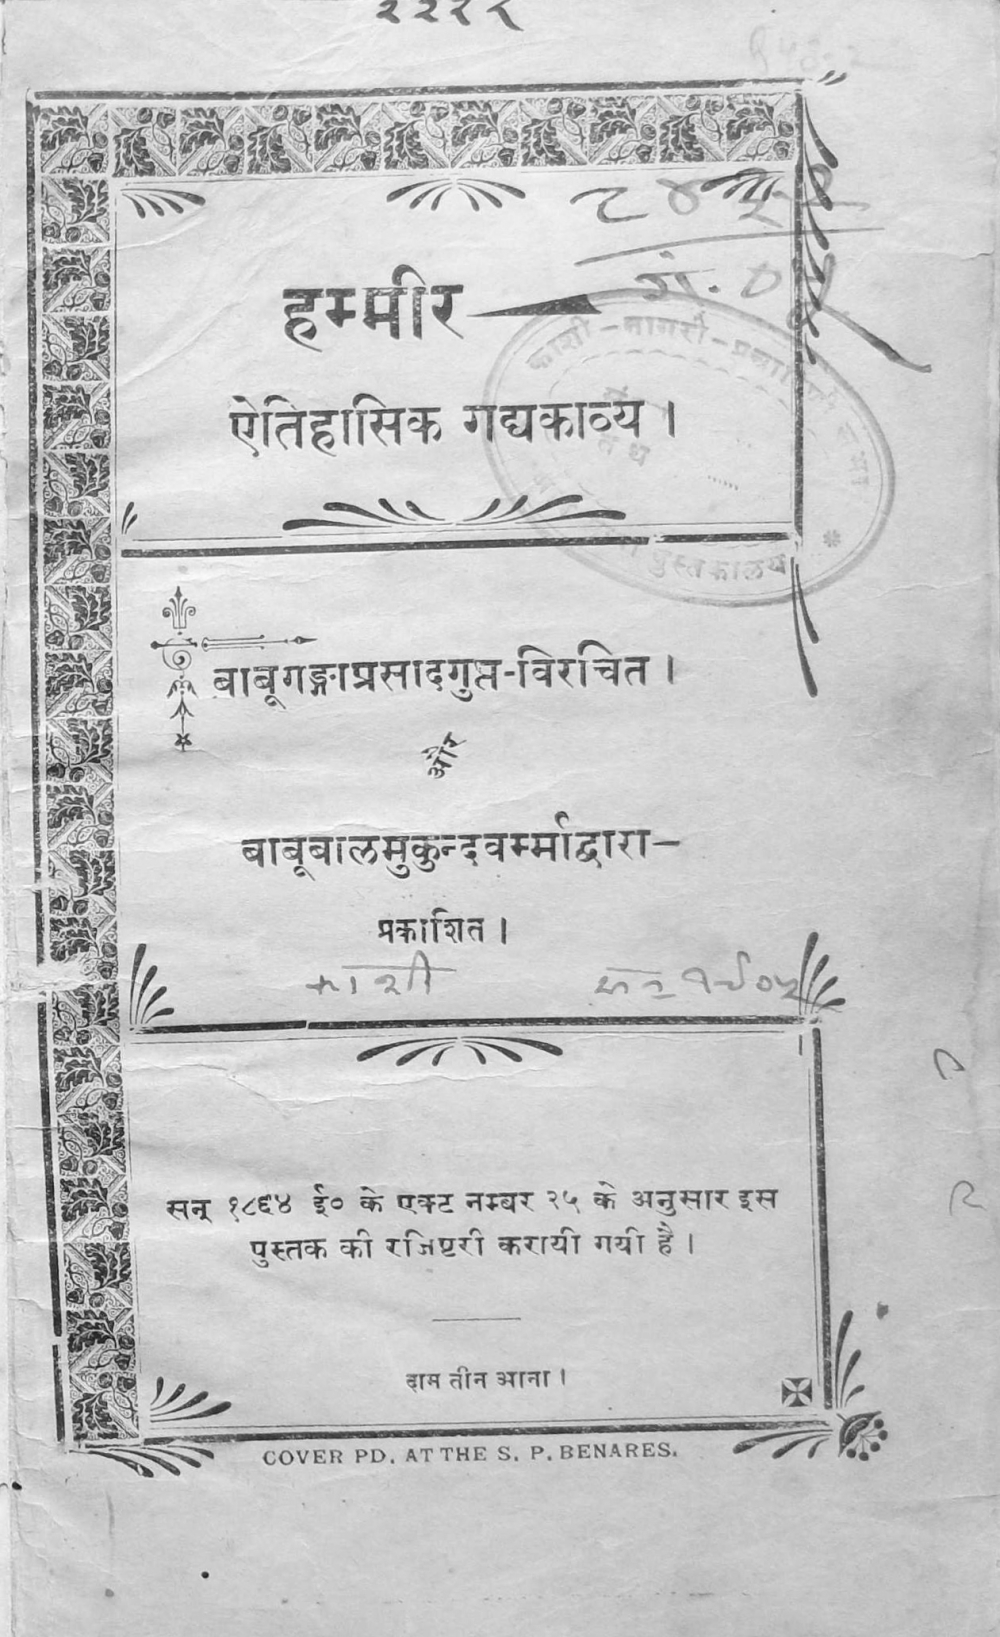 हम्मीर
ऐतिहासिक गद्यकाव्य ।
काशी-नागरी-प्रचारिणी सभा
पुस्तकालय
बाबूगङ्गाप्रसादगुप्त-विरचित ।
और
बाबूबालमुकुन्दवर्म्माद्वारा-
प्रकाशित ।
काशी सन १९०५
सन् १८६४ ई० के एक्ट नम्बर २५ के अनुसार इस
पुस्तक की रजिष्टरी करायी गयी है ।
दाम तीन आना ।
COVER PD. AT THE S. P. BENARES.